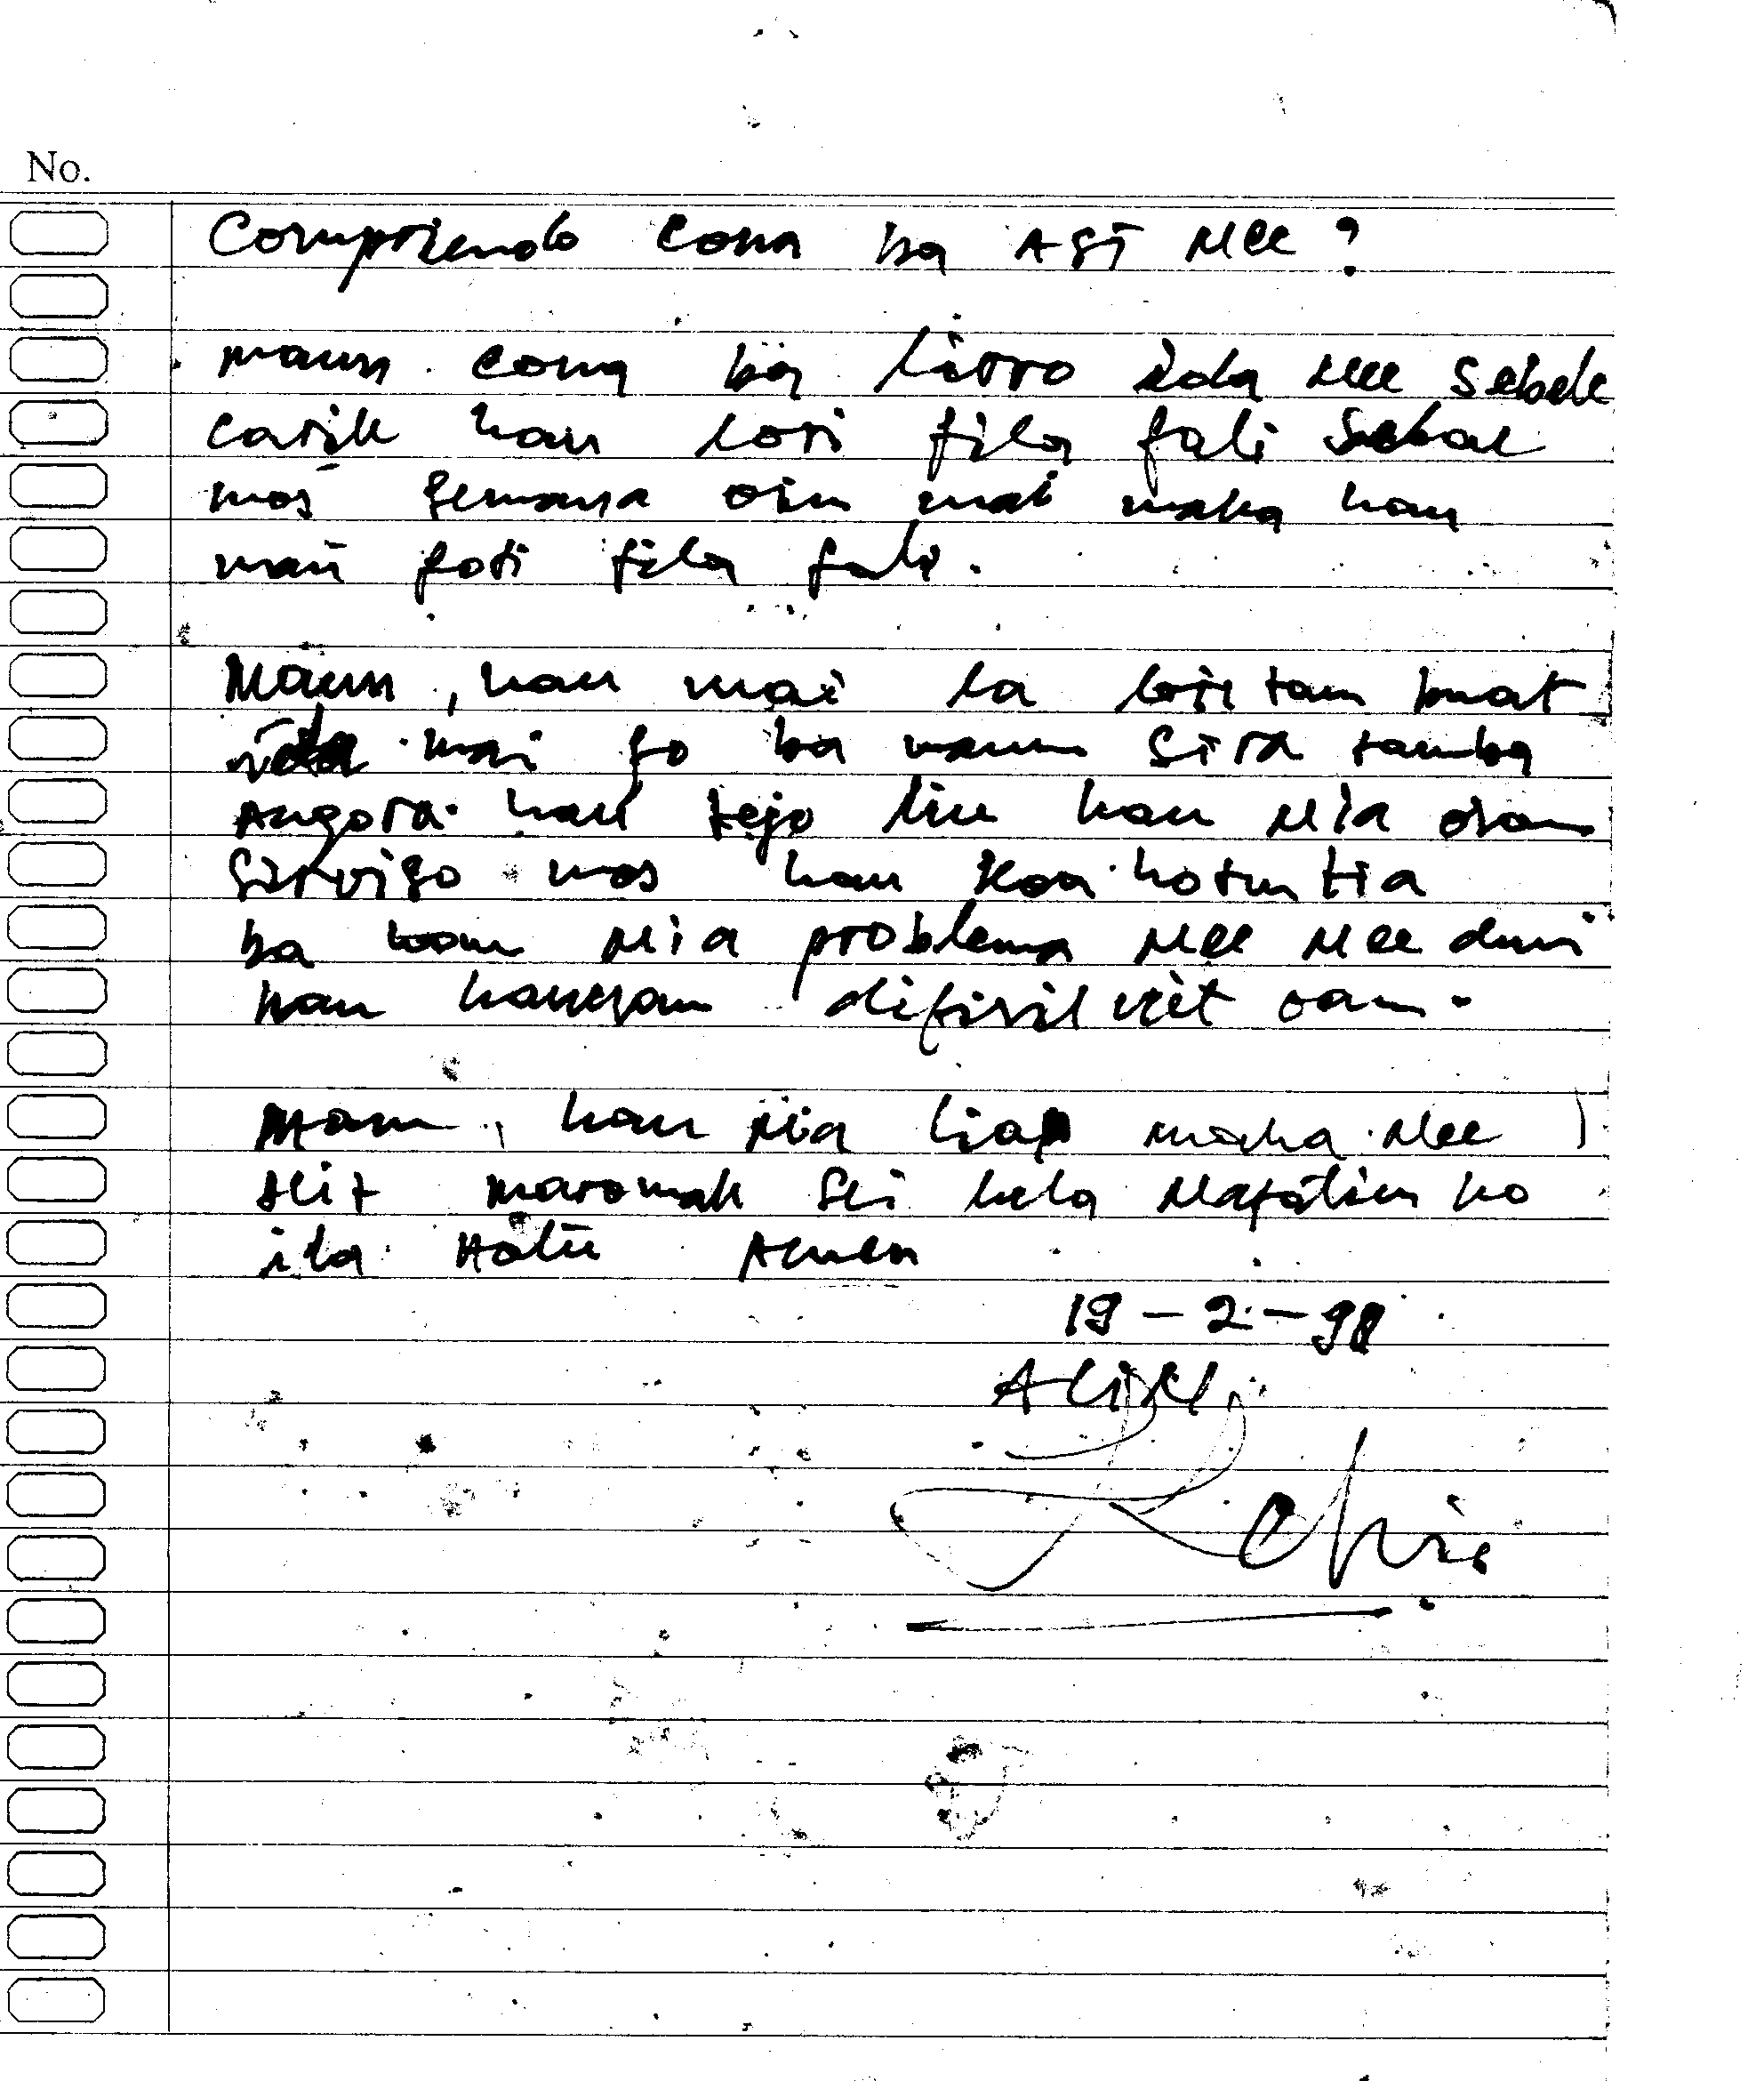 No.
Compriendo cona ba ASI Nee?
maun cona ba livro ida Nee sebele
carik hau lori fila fali Sebae
mos semana oin mai maka hau
mai foti fila fali.
Maun, hau mai la lori tan buat
ida mai fo ba maun sira tamba
Angora hau tejo liu hau Nia oram
serviso mos hau hotu tia
ba hau Nia problema Nee Nee duni
hau hanoan difisil oan.
Maun, hau Nia lia maka Nee
Neit maromak sei hela Nafatin ho
ita Hotu Amen
19-2-98